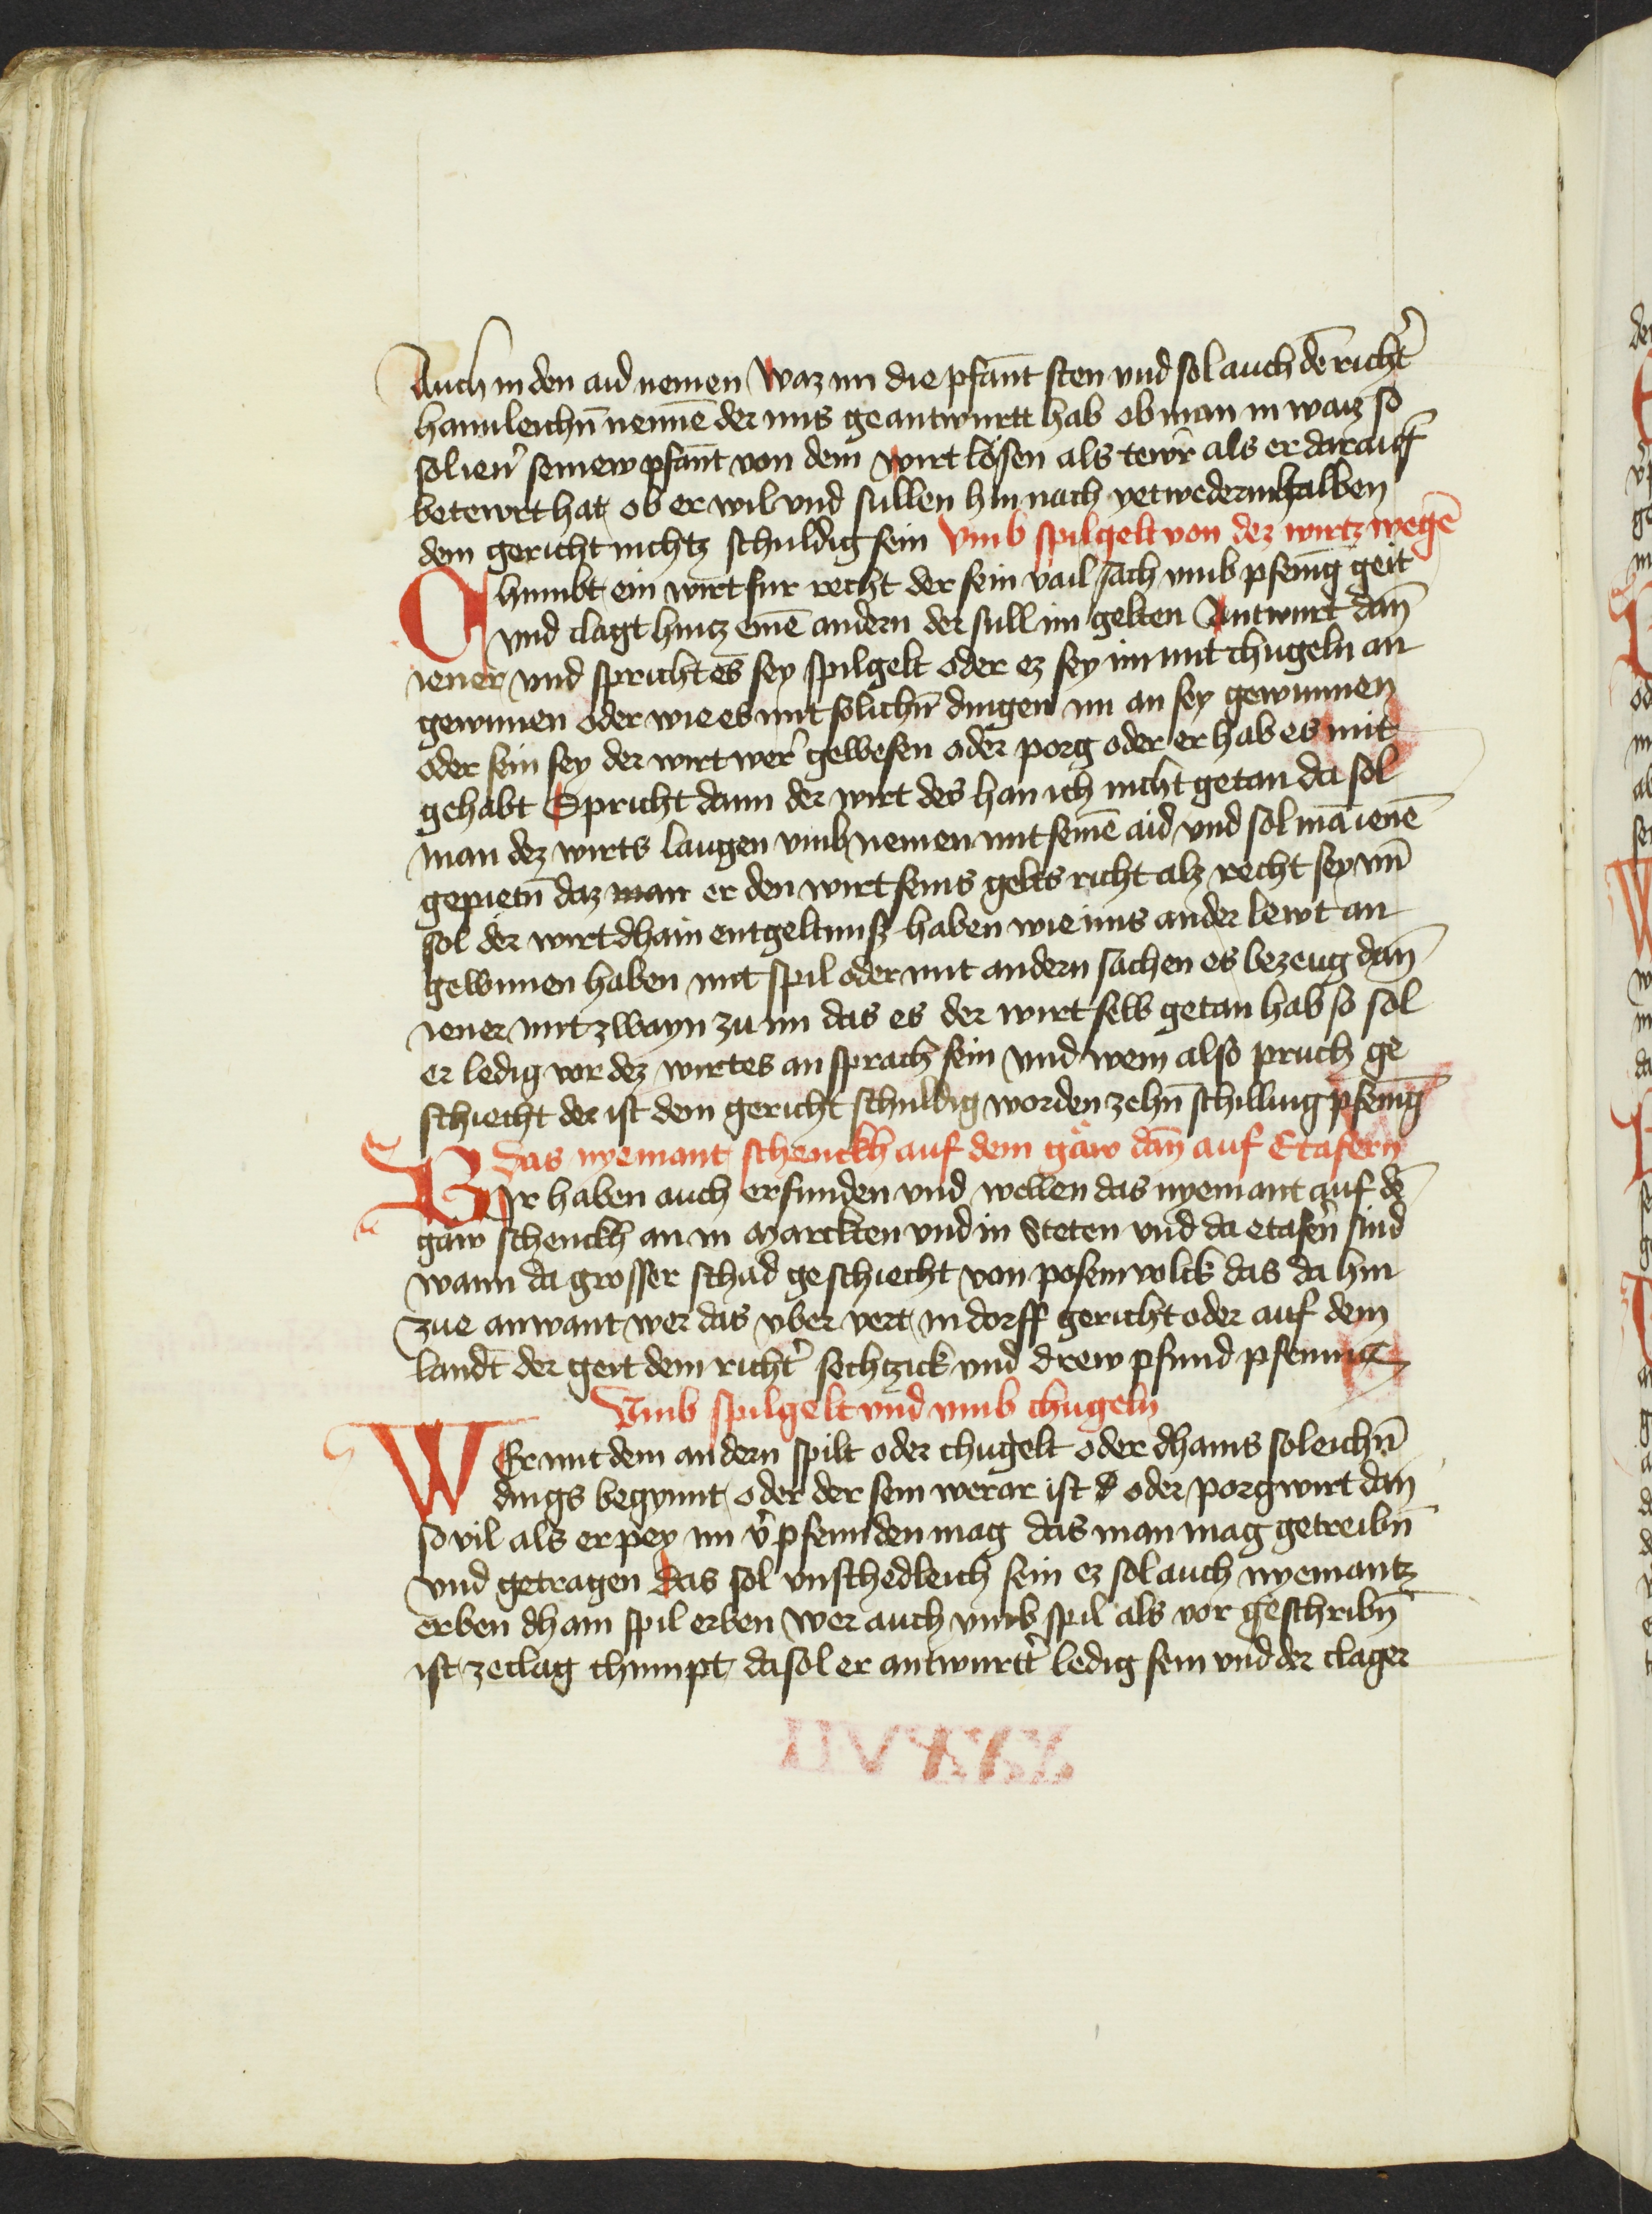 Auch in den aid nemen Waz im die pfant sten vnd sol auch dē richt̄
hamleichn̄ nennē der ims geantwurtt hab ob man in waiz so
sol ien̄ seinew pfant von dem wirt lösen als tewr als er darauff
betewrt hat ob er wil vnd sullen hin nach yetwederinhalben
dem gericht nichtz schuldig sein Vmb spilgelt von dez wirtz wegē
Chumbt ein wirt fur recht der sein vail sach vmb pfenīg geit
vnd clagt hintz einē andern der sull im gelten Antwurt dan̄
iener vnd spricht es sey spilgelt oder ez sey im mit chugeln an
gewunnen oder wie es mit solichn̄ dingen im an sey gewunnen
oder sein sey der wirt wer gewesen oder porg oder er hab es mit
gehabt Spricht dann der wirt des han ich nicht getan da sol
man dez wirts laugen vmb nemen mit seinē aid vnd sol mā ienē
gepietn̄ daz man er den wirt seins gelts richt alz recht sey vn̄
sol der wirt dhain entgeltnuß haben wie ims ander lewt an
gewunnen haben mit spil oder mit andern sachen es bezeug dan̄
iener mit zwayn zu im das es der wirt selb getan hab so sol
er ledig vor dez wirtes an sprach sein vnd wem also pruch ge
schiecht der ist dem gericht schuldig worden zehn̄ schilling pfenīg
Das nyemant schenckh auf dem gäw dan̄ auf Etafern
Wir haben auch erfunden vnd wellen das nyemant auf dē
gäw schenckh an in Marckten vnd in Steten vnd da etafern̄ sind
wann da grosser schad geschiecht von posem volck das da hin
zue anwant wer das vber vert in dorff gericht oder auf dem
landt der geit dem richt̄ sechtzick vnd drew pfund pfenning
Vmb spilgelt vnd vmb chugeln
Wer mit dem andern spilt oder chugelt oder dhains soleichn̄
dings begynnt oder der sein werar ist d oder porg wirt dan
so vil als er pey im v̄pfennden mag das man mag getreibn̄
vnd getragen Das sol vnschedleich sein ez sol auch nyemantz
erben dhain spil erben Wer auch vmb spil als vor geschribn̄
ist ze clag chumpt da sol er antwurtt̄ ledig sein vnd der clager